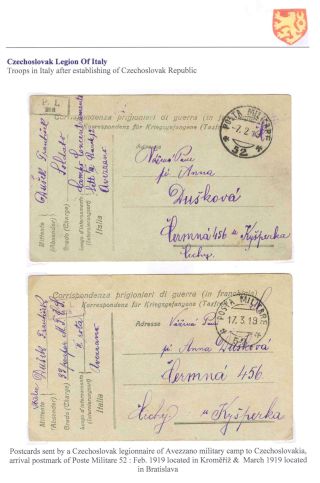 Czechoslovak Legion Of Italy
Troops in Italy after establishing of Czechoslovak Republic
P. L.
Corrispondenza prigionieri di guerra (in franchigia)
Korrespondenz für Kriegsgefangene (Taxfrei)
POSTA MILITARE
52
Vážená Paní
pí Anna
Dušková
Čermná 456 u Kyšperka
Čechy
Dušek František
Soldato
Avezzano
Italia
Mittente
(Absender)
Grado (Charge)
Luogo d'internamento
(Internierungsort)
Corrispondenza prigionieri di guerra (in franchigia)
Adresse
POSTA MILITARE
17. 3. 19
Vážená Paní
pí Anna Dušková
Čermná 456
u Kyšperka
Čechy
Dušek František
Avezzano
Italia
Mittente
(Absender)
Grado (Charge)
Luogo d'internamento
(Internierungsort)
Postcards sent by a Czechoslovak legionnaire of Avezzano military camp to Czechoslovakia,
arrival postmark of Poste Militare 52 : Feb. 1919 located in Kroměříž & March 1919 located
in Bratislava